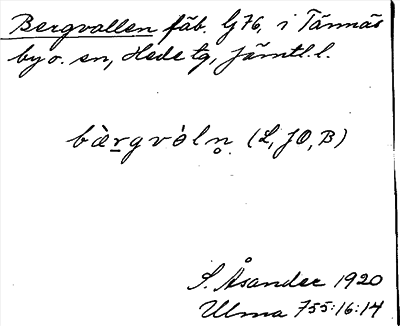 Bergvallen fäb. G76, i Tännäs
by o. sn, Hede tg, Jämtl. l.
bàrgvàln̥ (L, JO, B)
S. Åsander 1920
Ulma 755:16:14